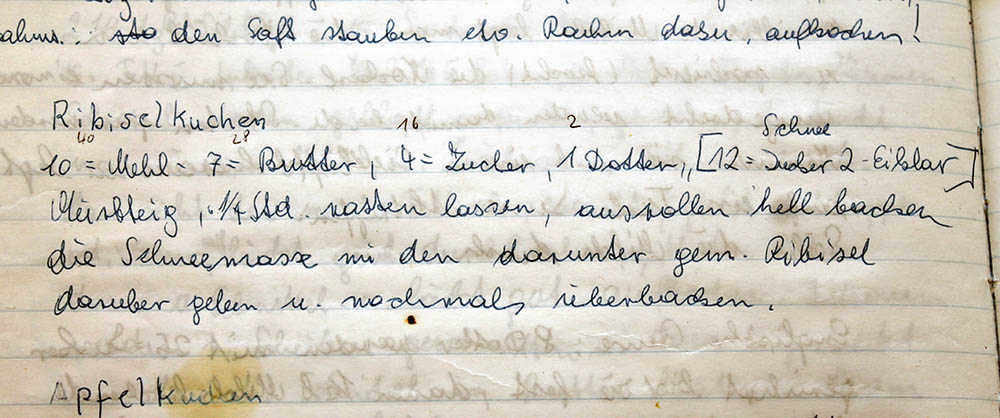 den Saft stauben etw. Rahm dazu, aufkochen!
Ribiselkuchen
40 28 16 2 Schnee
10 = Mehl - 7 = Butter, 4 = Zucker, 1 Dotter, [12 = Zucker 2 - Eiklar]
Mürbteig, 1/4 Std. rasten lassen, ausrollen hell backen
die Schneemasse mi den darunter gem. Ribisel
darüber geben u. nochmals überbacken.
Apfelkuchen